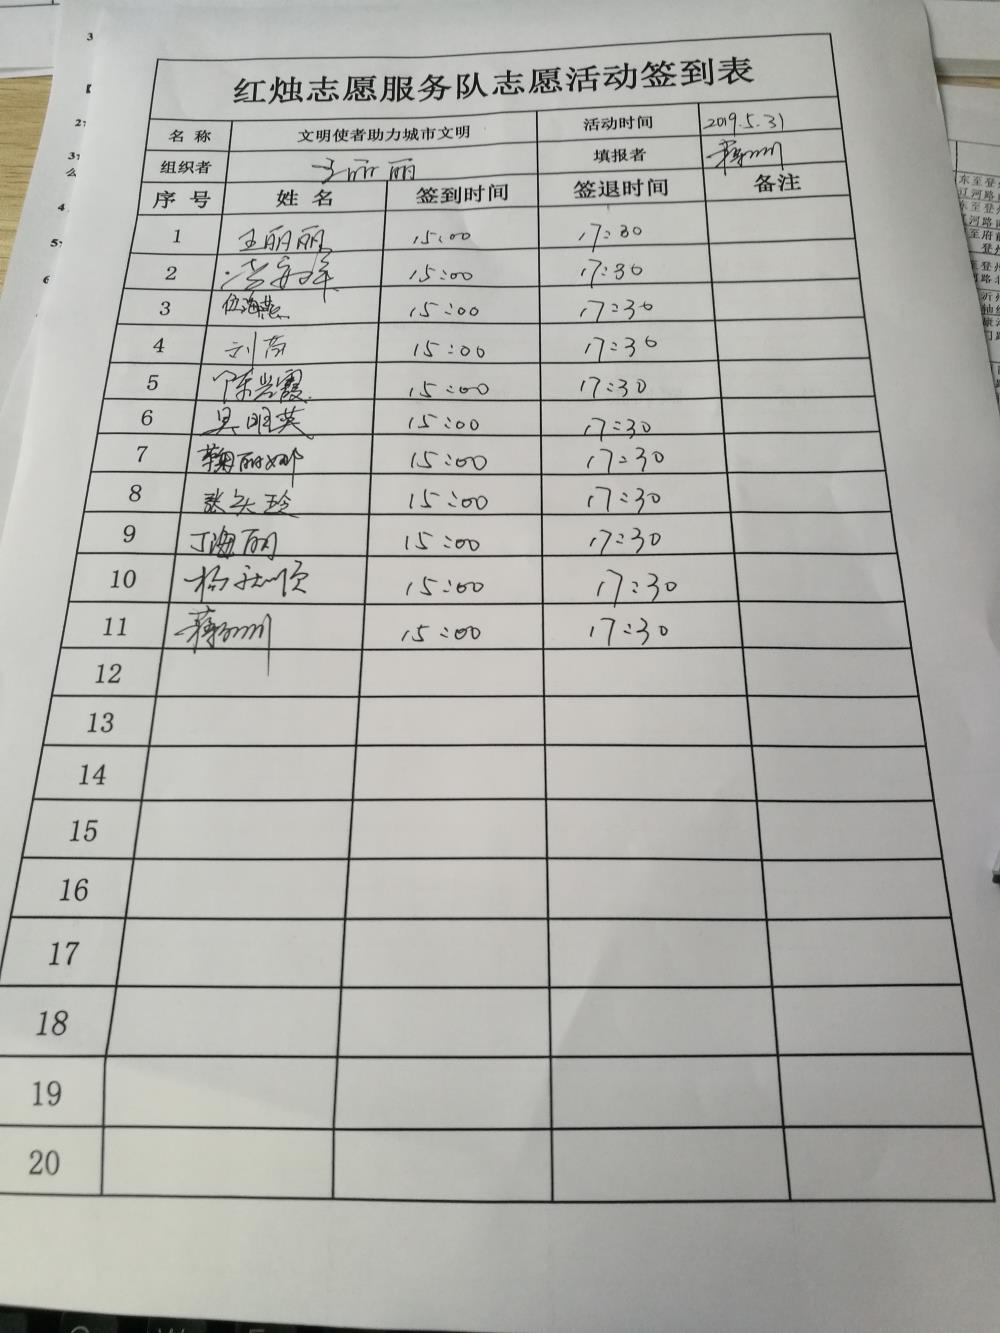 红烛志愿服务队志愿活动签到表
名 称 文明使者助力城市文明 活动时间 2019.5.31
组织者 王丽丽 填报者
序 号 姓 名 签到时间 签退时间 备注
1 王丽丽 15:00 17:30
2 15:00 17:30
3 位海燕 15:00 17:30
4 刘芳 15:00 17:30
5 陈兰霞 15:00 17:30
6 吴明英 15:00 17:30
7 鞠丽娜 15:00 17:30
8 张玲 15:00 17:30
9 丁海丽 15:00 17:30
10 15:00 17:30
11 15:00 17:30
12
13
14
15
16
17
18
19
20